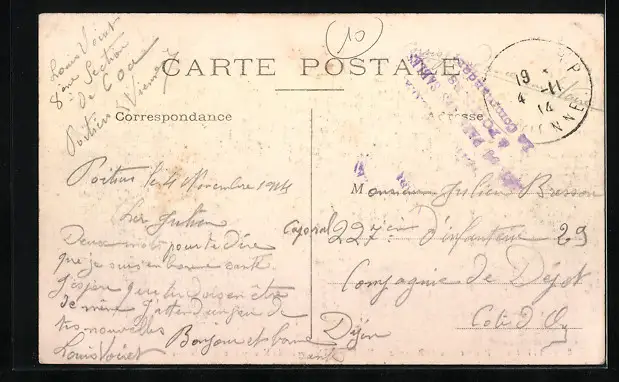 10
Louis Voinet
8ème Section
De C.O.A
Poitiers Vienne
CARTE POSTALE
Correspondance
Adresse
19
4 - 11
14
VIENNE
Poitiers le 4 Novembre 1914
Cher Julien
Deux mots pour te dire
que je suis en bonne santé
J'espère que tu dois en être
de même J'attend un peu de
tes nouvelles
Bonjour et bonne
santé
Louis Voinet
Monsieur Julien Buisson
Caporal 227ème d'infanterie 29
Compagnie de Dépot
Dijon
Cote d'Or